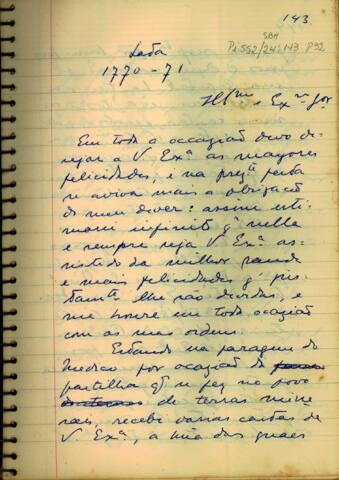 143
SBH
Pi 552/24: 143 P32
1770-71
Illmo e Exmo Snr
Em toda a occazião devo de-
sejar a V Exa as mayores
felicidades, e na prezte perta
se aviva mais a obrigação
do meu dever: assim esti-
marei infinito q' nella
e sempre seja V Exa as-
sistido da milhor saude
e mais felicidades q'
lhe são devidas, e
me honre em toda occazião
com as suas ordens.
Estando na paragem do
Medico por occazião da
partilha q' se fez no novo
de terras mine-
raes, recebi varias cartas de
V Exa, a húa das quaes